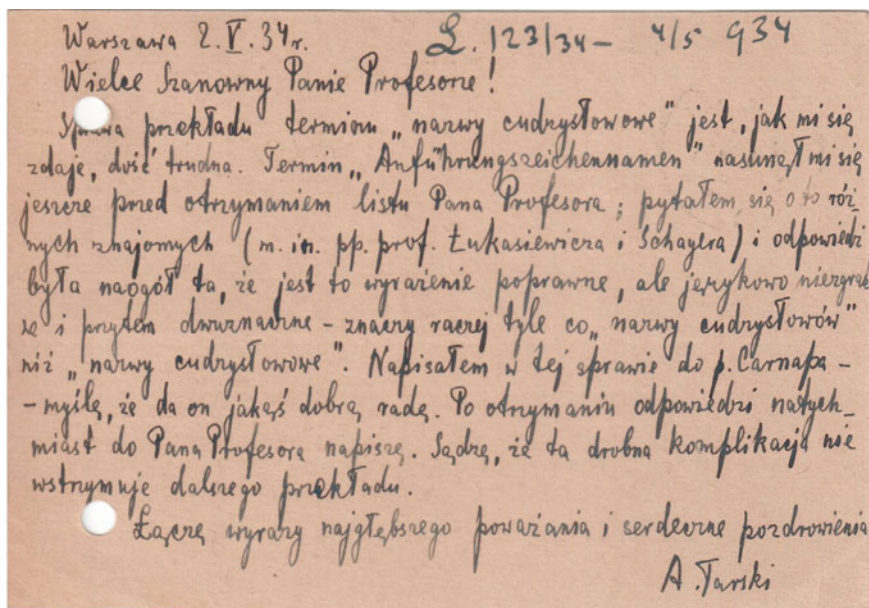 Warszawa 2.V.34r. L. 123/34 – 4/5 934
Wielce Szanowny Panie Profesorze!
Sprawa przekładu terminu „nazwy cudzysłowowe” jest, jak mi się
zdaje, dość trudna. Termin „Anführungszeichennamen” nasunął mi się
jeszcze przed otrzymaniem listu Pana Profesora; pytałem się o to róż-
nych znajomych (m. in. pp. prof. Łukasiewicza i Schayera) i odpowiedź
była naogół ta, że jest to wyrażenie poprawne, ale językowo niezgrab-
ne i przytem dwuznaczne – znaczy raczej tyle co „nazwy cudzysłowów”
niż „nazwy cudzysłowowe”. Napisałem w tej sprawie do p. Carnapa –
– myślę, że da on jakąś dobrą radę. Po otrzymaniu odpowiedzi natych-
miast do Pana Profesora napiszę. Sądzę, że ta drobna komplikacja nie
wstrzymuje dalszego przekładu.
Łączę wyrazy najgłębszego poważania i serdeczne pozdrowienia
A. Tarski